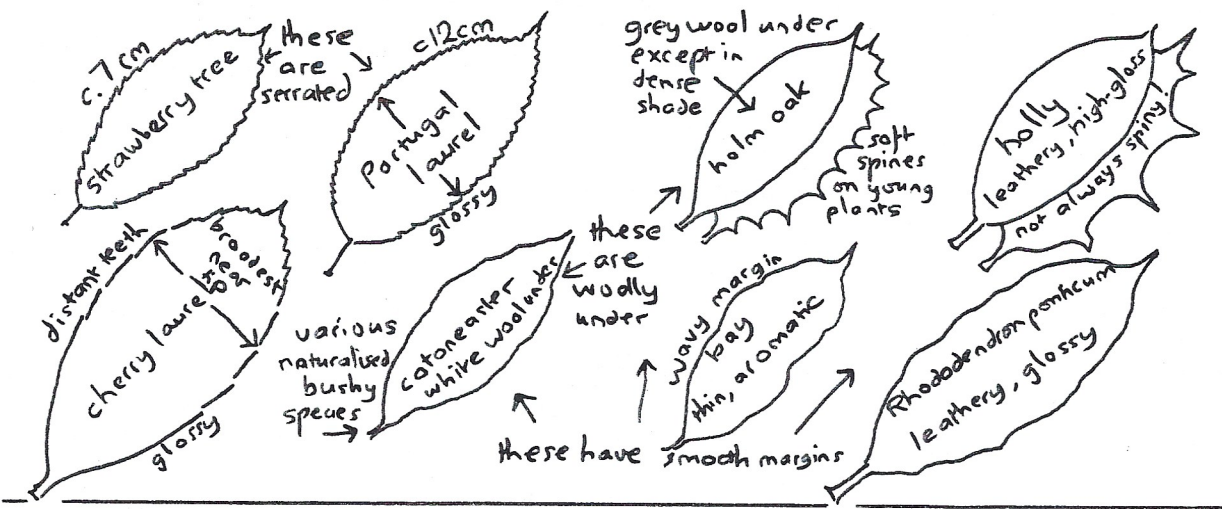 c.7cm
strawberry tree
these
are
serrated
c12cm
Portugal
laurel
glossy
grey wool under
except in
dense
shade
holm oak
soft
spines
on young
plants
holly
leathery, high-gloss
not always spiny!
distant teeth
broadest
near
tip
cherry laurel
glossy
various
naturalised
bushy
species
cotoneaster
white wool under
these
are
woolly
under
wavy margin
bay
thin, aromatic
Rhododendron ponticum
leathery, glossy
these have smooth margins